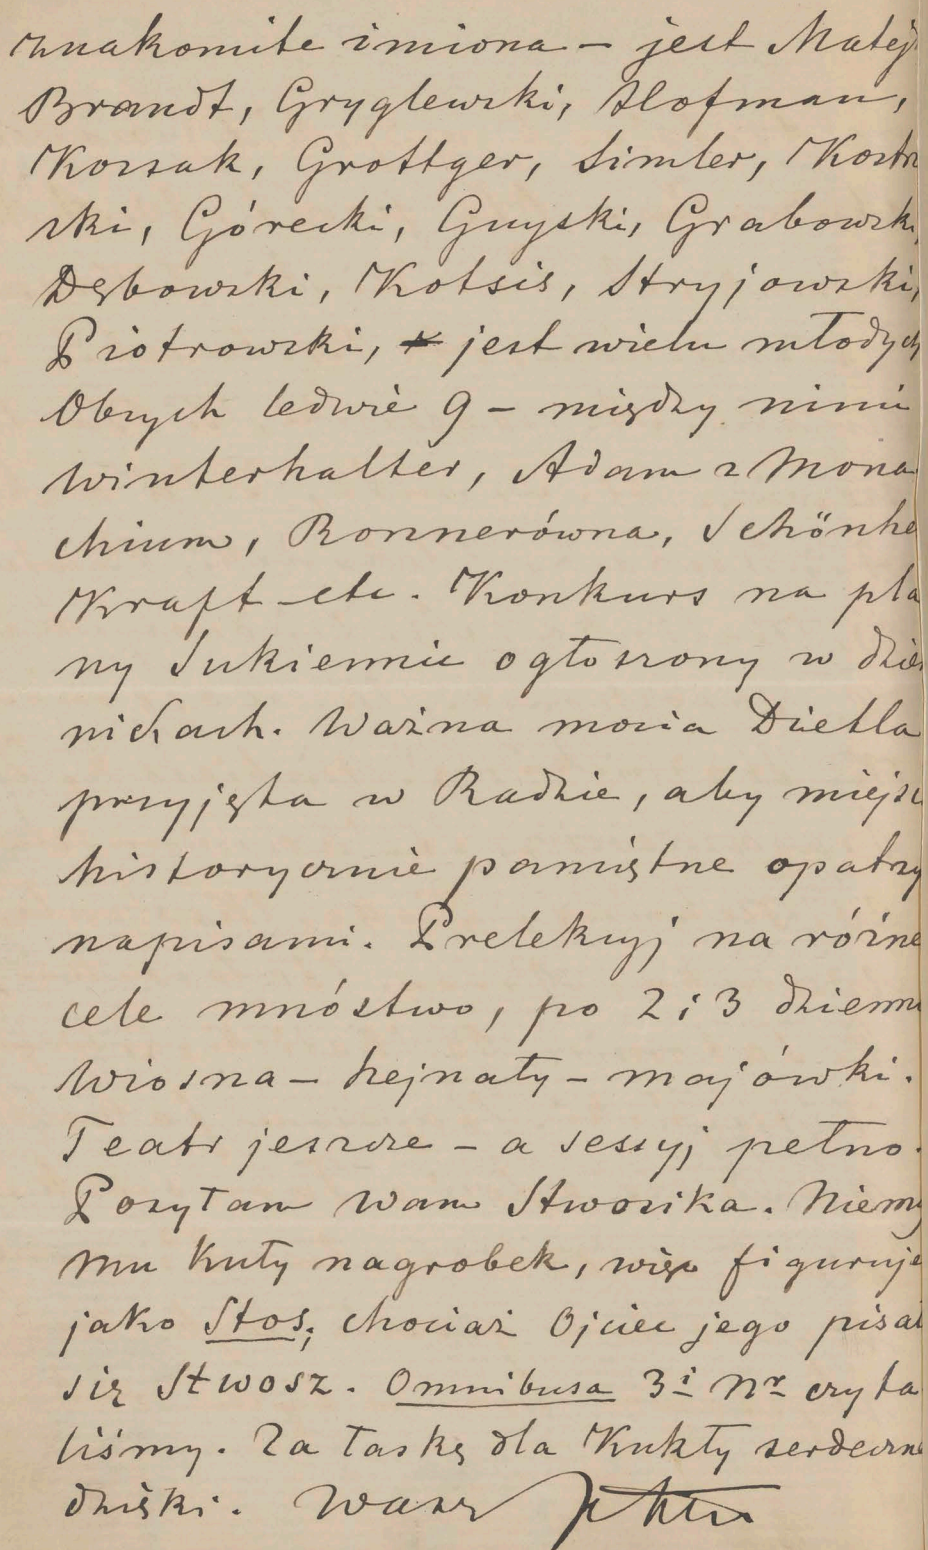 znakomite imiona – jest Matej
Brandt, Gryglewski, Hofman,
Kossak, Grottger, Simler, Kostrz
ski, Górecki, Guyski, Grabowski,
Dębowski, Kotsis, Stryjowski,
Piotrowski, jest wielu młodych
Obcych ledwie 9 – między nimi
Winterhalter, Adam z Mona
chium, Ronnerówna, Schönhe
Kraft etc. Konkurs na pla
ny Sukiennic ogłoszony w dzien
nikach. Ważna mocia Dietla
przyjęta w Radzie, aby miejsc
historycznie pamiętne opatrzy
napisami. Prelekcyj na różne
cele mnóstwo, po 2 i 3 dzienni
Wiosna – hejnały – majówki.
Teatr jeszcze – a sessyj pełno.
Posyłam Wam Stwosika. Niemcy
mu kuły nagrobek, więc figuruje
jako Stos; chociaż Ojciec jego pisał
się Stwosz. Omnibusa 3i Nr czyta
liśmy. Za łaskę dla Kukły serdeczne
dzięki. Wasz